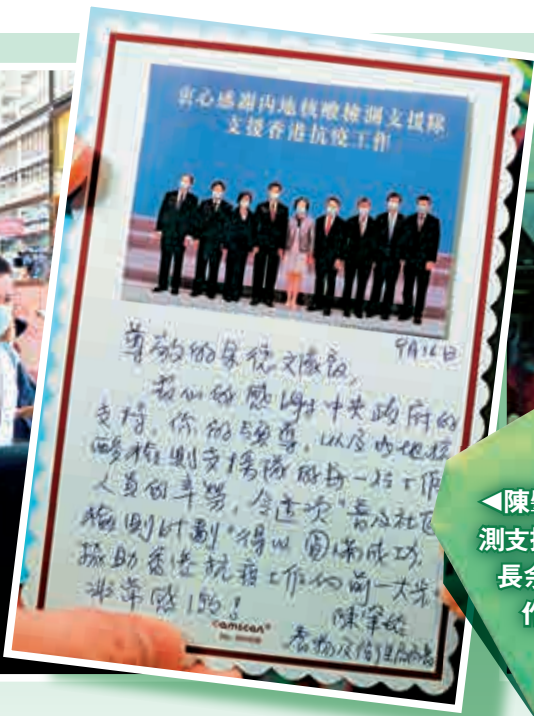 衷心感謝內地核酸檢測支援隊
支援香港抗疫工作
9月16日
尊敬的余德文隊長，
我心砍感謝中央政府的
支持，你的領導，以及內地核
酸檢測支援隊的每一位工作
人員的辛勞，令這次"普及社區
檢測計劃"得以圓滿成功，
協助香港抗疫工作向前一大步
非常感謝！
陳肇始
食物及衛生局局長
camscan
◀陳肇
測支援
長余
作